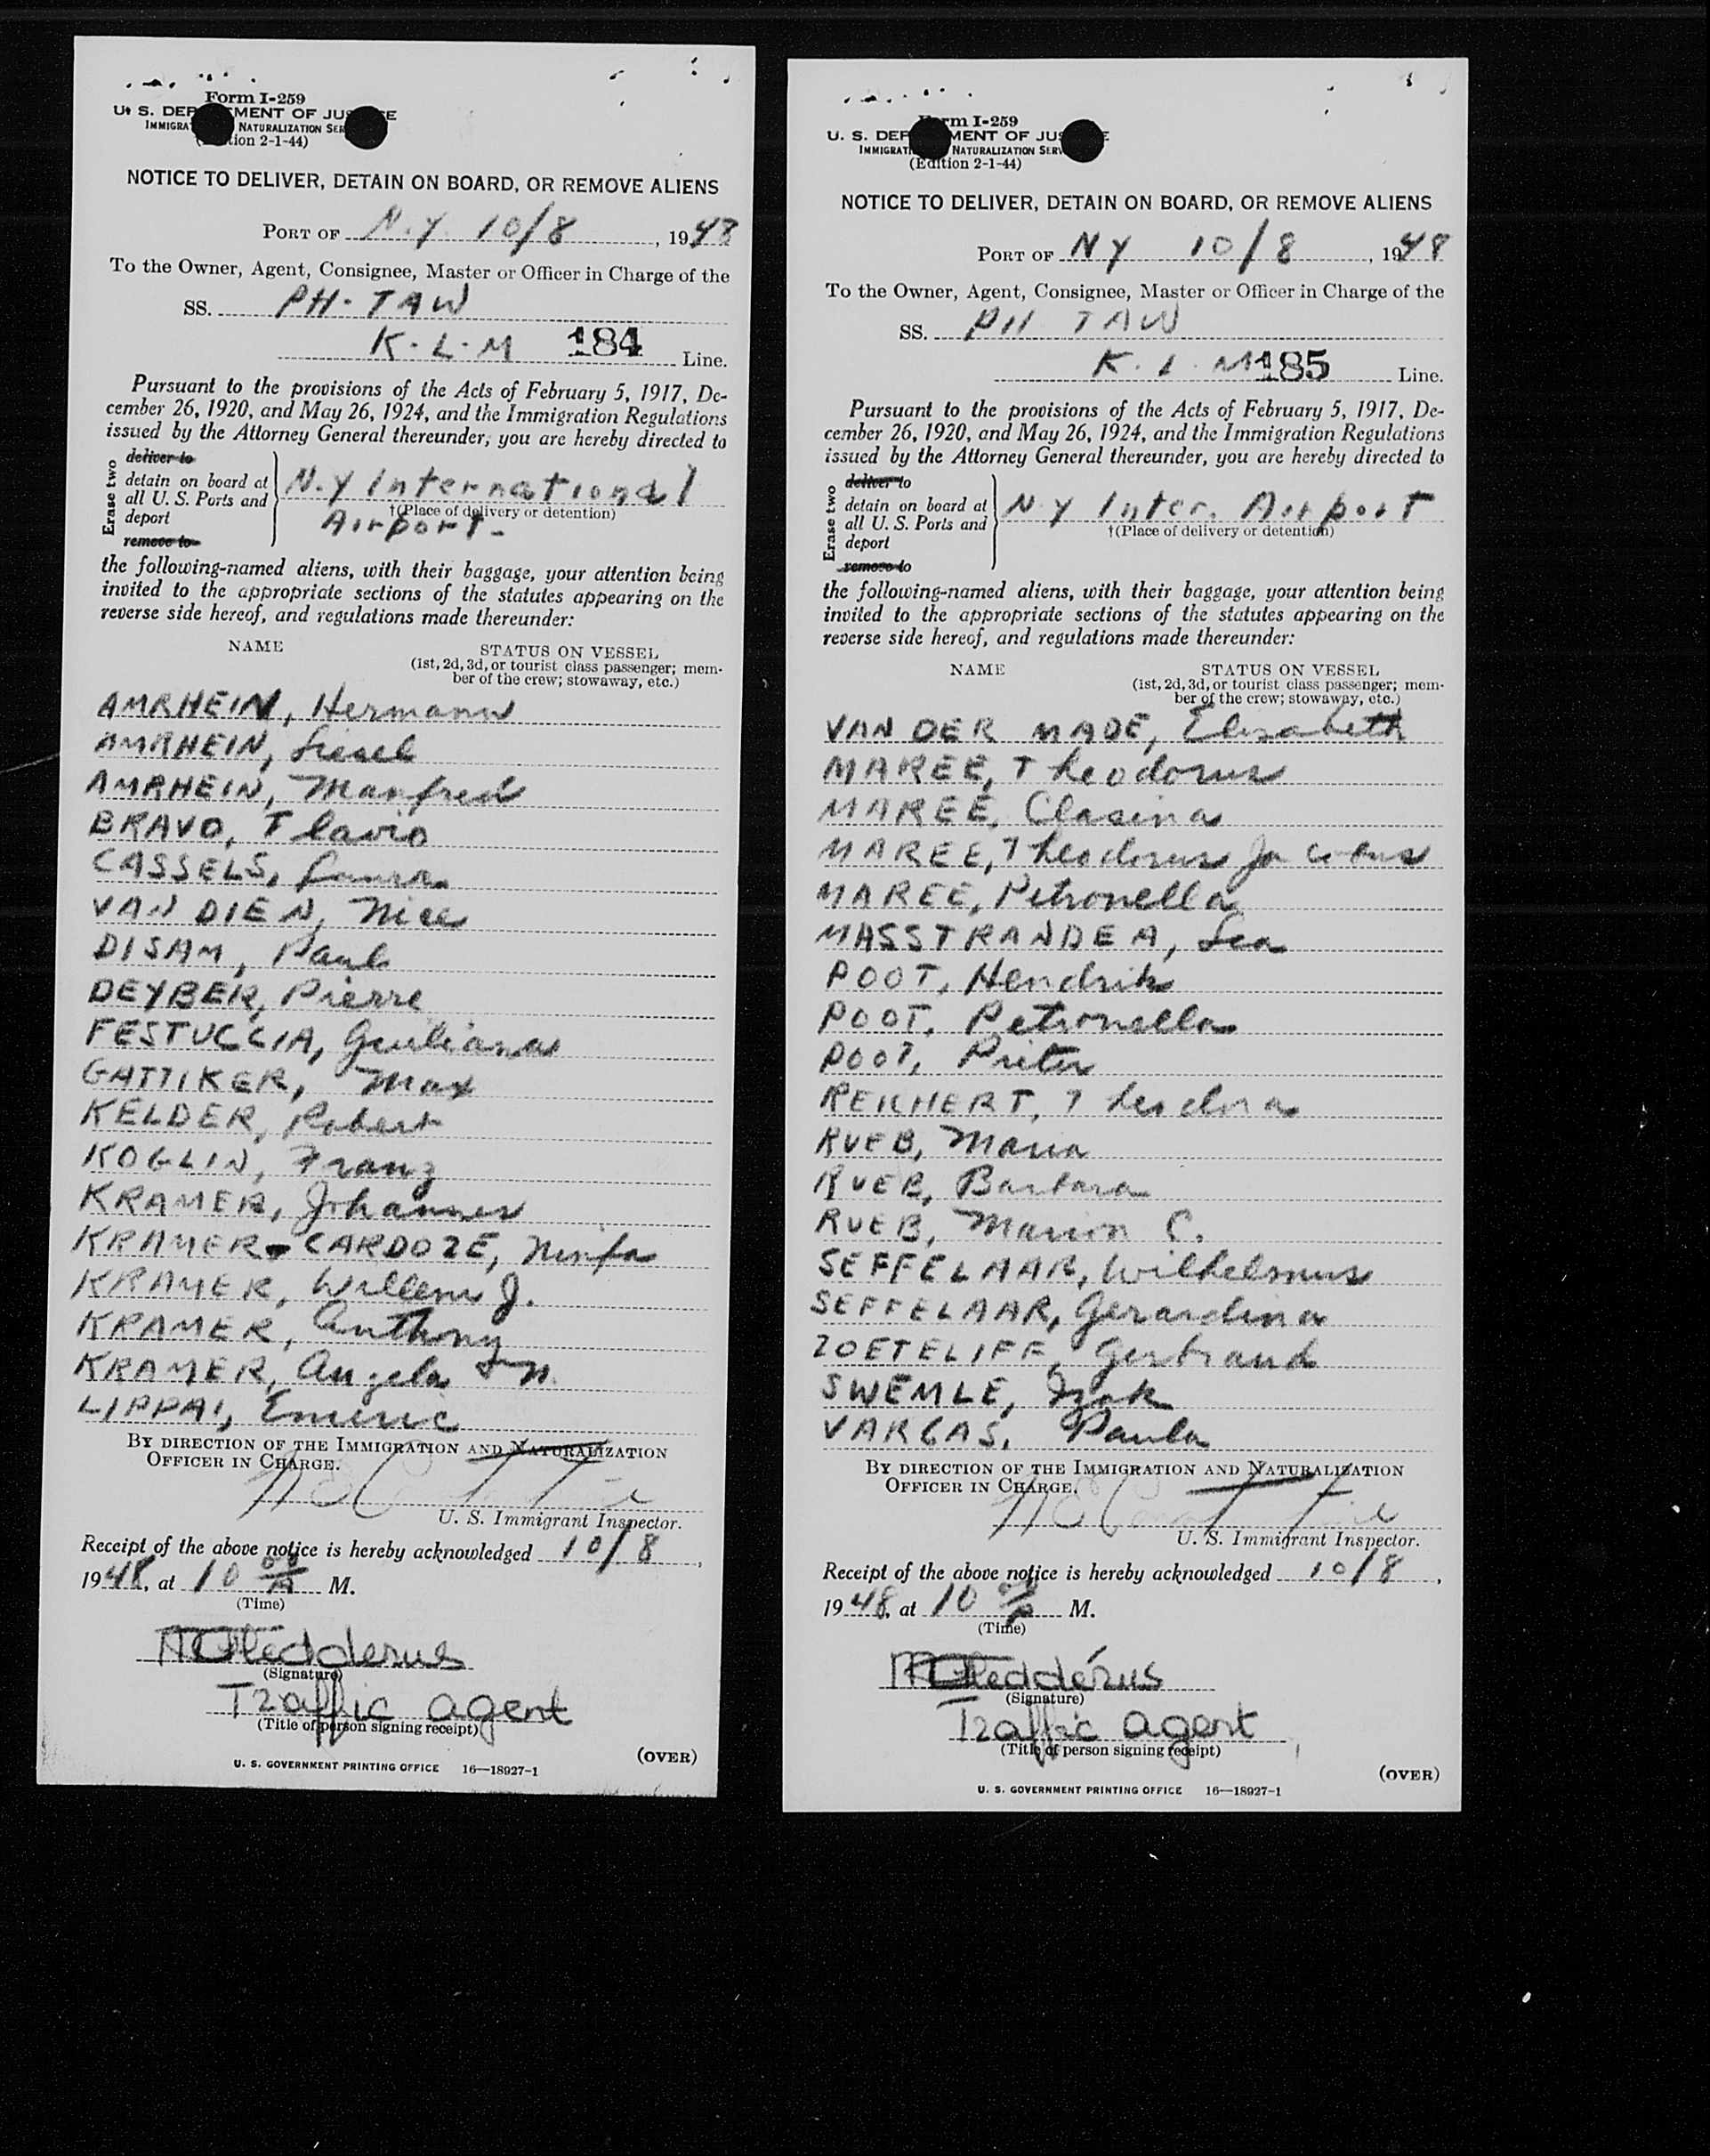 Form I-259
U. S. DEPARTMENT OF JUSTICE
IMMIGRATION NATURALIZATION SERV
(Edition 2-1-44)
NOTICE TO DELIVER, DETAIN ON BOARD, OR REMOVE ALIENS
PORT OF N.Y. 10/8, 1948
To the Owner, Agent, Consignee, Master or Officer in Charge of the
SS. PH-TAW
K.L.M 184 Line.
Pursuant to the provisions of the Acts of February 5, 1917, De-
cember 26, 1920, and May 26, 1924, and the Immigration Regulations
issued by the Attorney General thereunder, you are hereby directed to
Erase two
deliver to
detain on board at
all U. S. Ports and
deport
remove to
N.Y International
†(Place of delivery or detention)
Airport-
the following-named aliens, with their baggage, your attention being
invited to the appropriate sections of the statutes appearing on the
reverse side hereof, and regulations made thereunder:
NAME STATUS ON VESSEL
(1st, 2d, 3d, or tourist class passenger; mem-
ber of the crew; stowaway, etc.)
AMRHEIN, Hermann
AMRHEIN, Liesel
AMRHEIN, Manfred
BRAVO, Flavio
CASSELS,
VAN DIEN,
DISAM, Paul
DEYBER, Pierre
FESTUCCIA, Giuliana
GATTIKER, Max
KELDER, Robert
KOGLIN, Franz
KRAMER, Johannes
KRAMER-CARDOZE, Ninfa
KRAMER, Willem J.
KRAMER, Anthony
KRAMER, Angela
LIPPAI, Emeric
BY DIRECTION OF THE IMMIGRATION AND NATURALIZATION
OFFICER IN CHARGE.
U. S. Immigrant Inspector.
Receipt of the above notice is hereby acknowledged 10/8,
1948, at 10 00 A M.
(Time)
(Signature)
Traffic agent
(Title of person signing receipt)
(OVER)
U. S. GOVERNMENT PRINTING OFFICE 16—18927-1
Form I-259
U. S. DEPARTMENT OF JUSTICE
IMMIGRATION NATURALIZATION SERV
(Edition 2-1-44)
NOTICE TO DELIVER, DETAIN ON BOARD, OR REMOVE ALIENS
PORT OF NY 10/8, 1948
To the Owner, Agent, Consignee, Master or Officer in Charge of the
SS. PH TAW
K.L.M 185 Line.
Pursuant to the provisions of the Acts of February 5, 1917, De-
cember 26, 1920, and May 26, 1924, and the Immigration Regulations
issued by the Attorney General thereunder, you are hereby directed to
Erase two
deliver to
detain on board at
all U. S. Ports and
deport
remove to
N.Y Inter. Airport
†(Place of delivery or detention)
the following-named aliens, with their baggage, your attention being
invited to the appropriate sections of the statutes appearing on the
reverse side hereof, and regulations made thereunder:
NAME STATUS ON VESSEL
(1st, 2d, 3d, or tourist class passenger; mem-
ber of the crew; stowaway, etc.)
VAN DER MADE, Elisabeth
MAREE, Theodorus
MAREE, Clasina
MAREE, Theodorus Jacobus
MAREE, Petronella
MASSTRANDEA, Lea
POOT, Hendrik
POOT, Petronella
POOT, Pieter
REICHERT, Theodora
RUEB, Maria
RUEB, Barbara
RUEB, Marion C.
SEFFELAAR, Wilhelmus
SEFFELAAR, Gerardina
ZOETELIFF, Gertraud
SWEMLE, Izak
VARGAS, Paula
BY DIRECTION OF THE IMMIGRATION AND NATURALIZATION
OFFICER IN CHARGE.
U. S. Immigrant Inspector.
Receipt of the above notice is hereby acknowledged 10/8,
1948, at 10 00 P M.
(Time)
(Signature)
Traffic agent
(Title of person signing receipt)
(OVER)
U. S. GOVERNMENT PRINTING OFFICE 16—18927-1